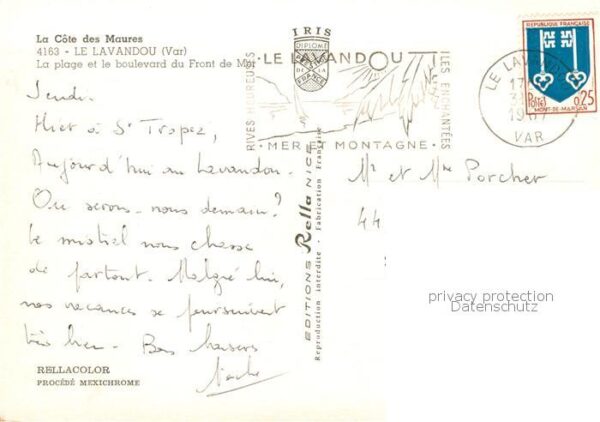 La Côte des Maures
4163 - LE LAVANDOU (Var)
La plage et le boulevard du Front de Mer
Jeudi.
Hier à St Tropez,
Aujourd'hui au Lavandou.
Où serons-nous demain?
Le mistral nous chasse
de partout. Malgré lui,
nos vacances se poursuivent
très bien. Bons baisers
RELLACOLOR
PROCÉDÉ MEXICHROME
IRIS
DIPLOME
FRANCE
EDITIONS Rella NICE
Reproduction interdite - Fabrication Française
RIVES HEUREUSES
LE LAVANDOU
ILES ENCHANTÉES
MER ET MONTAGNE
LE LAVANDOU
17
VAR
REPUBLIQUE FRANÇAISE
Postes 0,25
MONT-DE-MARSAN
Mr et Mme Porcher
44
privacy protection
Datenschutz